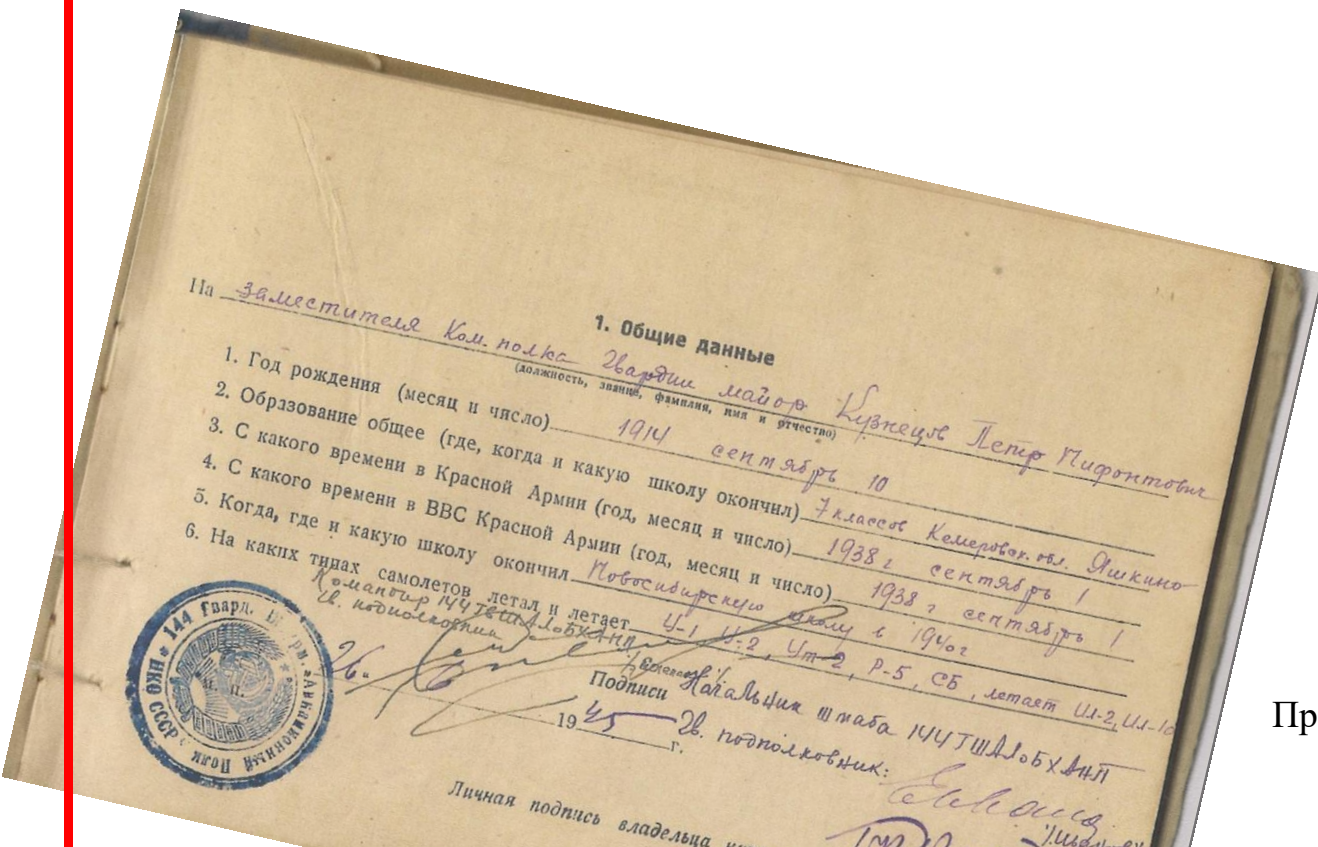 1. Общие данные
На заместителя Ком. полка Гвардии майор Кузнецов Петр Нифонтович
(должность, звание, фамилия, имя и отчество)
1. Год рождения (месяц и число) 1914 сентябрь 10
2. Образование общее (где, когда и какую школу окончил) 7 классов Кемеровск. обл. Яшкино
3. С какого времени в Красной Армии (год, месяц и число) 1938 г сентябрь 1
4. С какого времени в ВВС Красной Армии (год, месяц и число) 1938 г сентябрь 1
5. Когда, где и какую школу окончил Новосибирскую школу в 1940г
6. На каких типах самолетов летал и летает У-1 У-2, Ут-2, Р-5, СБ, летает Ил-2, Ил-10
Командир 144 ГвШАЛоБХАНП
Гв. подполковник
Подписи Начальник штаба 144 ГШАЛоБХАНП
Гв. подполковник:
26.
1945 г.
НКО СССР 144 Гвард. Авиационный Полк
Личная подпись владельца
Пр